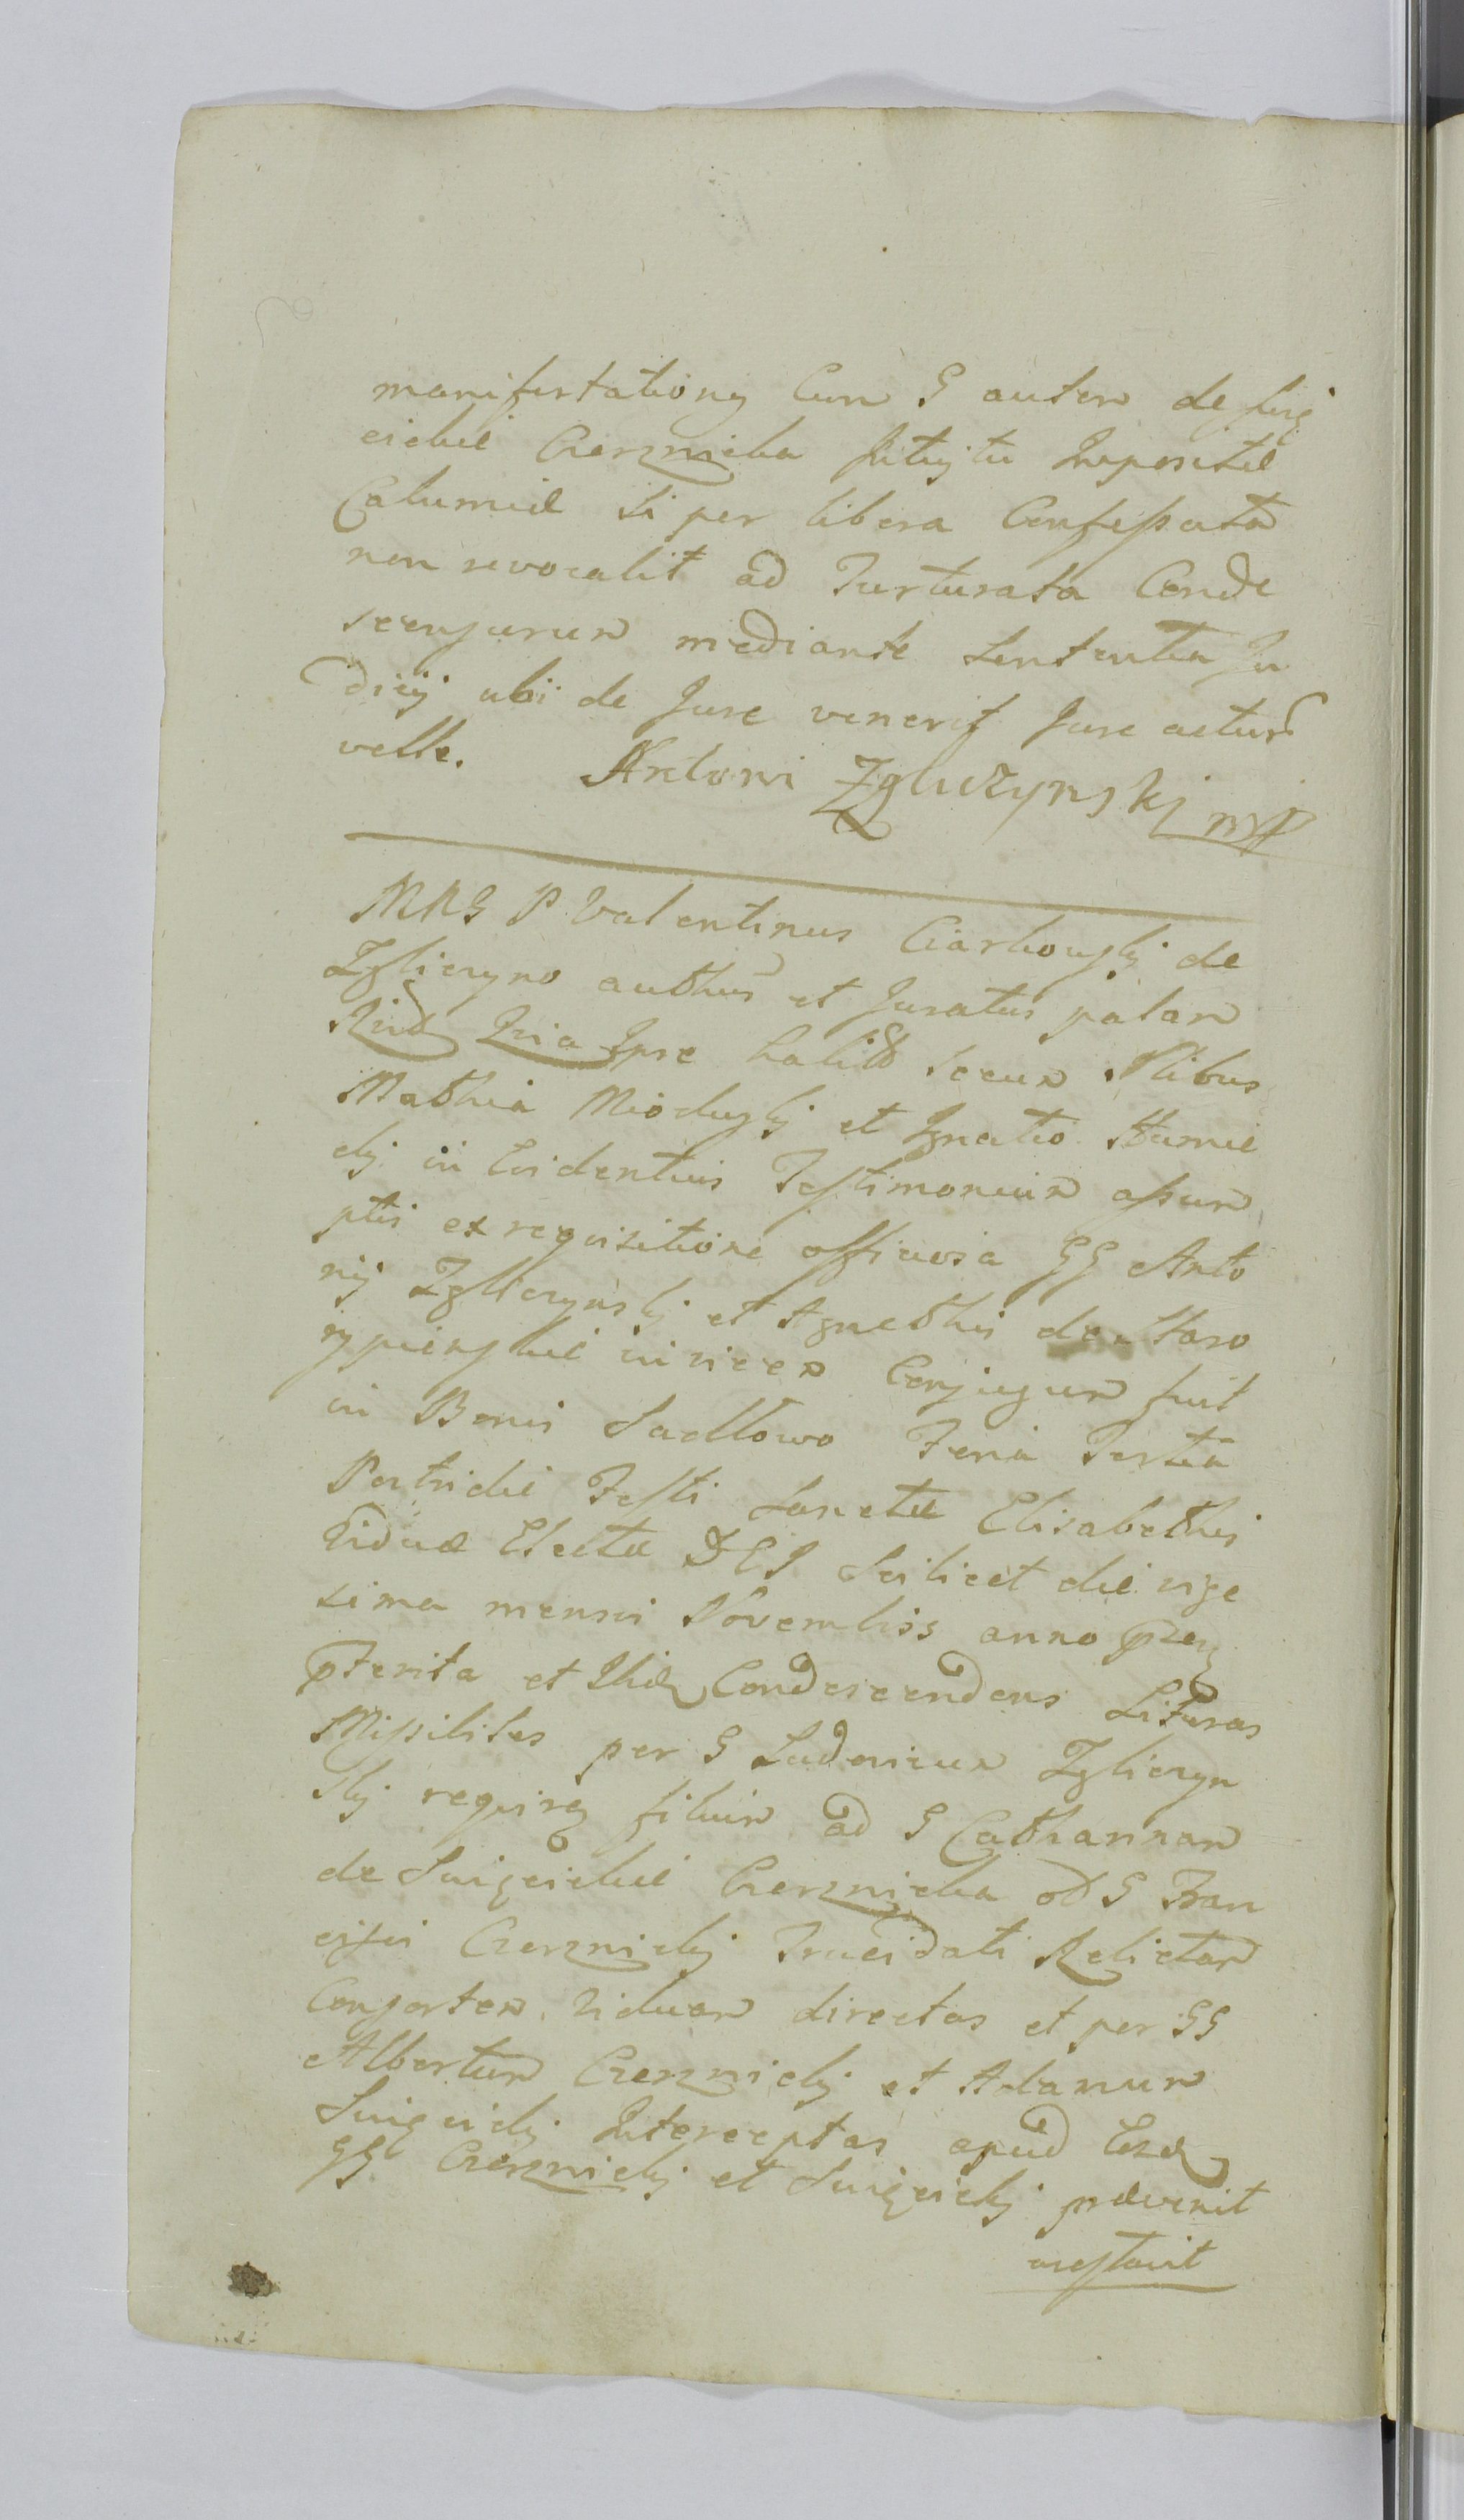 manifestationis Cum G autem de Swię
cickie Czernicka Intuitu Impositæ
Calumiæ si per libera Confessata
non revocabit ad Torturata Conde
scensurum mediante sententia Ju
dicij ubi de Jure venerit Jure actur
velle. Antoni Zgliczynskj mp
MNG P Valentinus Ciarkowskj de
Zgliczyno authus et Juratus palam
Rcdt Quia Ipse habitis secum Nlibus
Mathia Mioduskj et Ignatio Humie
ckj in Evidentius Testimonium assum
ptis ex requisitione officiosa GG Anto
nij Zgliczynskj et Agnethis de Staro
rypienskie invicem Conjugum fuit
in Bonis Sadlowo Feria Tertia
Postridie Festi Sanctæ Elisabethis
Viduæ Electæ DEI scilicet die vige
sima mensis Novembris anno præ
pterita et Ibidem Condescendens Literas
Missiles per G Ludovicum Zgliczyn
skj filium ad G Catharinam
de Swięcickie Czernicka od G Fran
cisci Czernickj Trucidati Relictam
Consortem viduam directas et per GG
Albertum Czernickj et Adamum
Swięcickj Interceptas apud Eosd
GG Czernickj et Swięcickj prævenit
arestavit